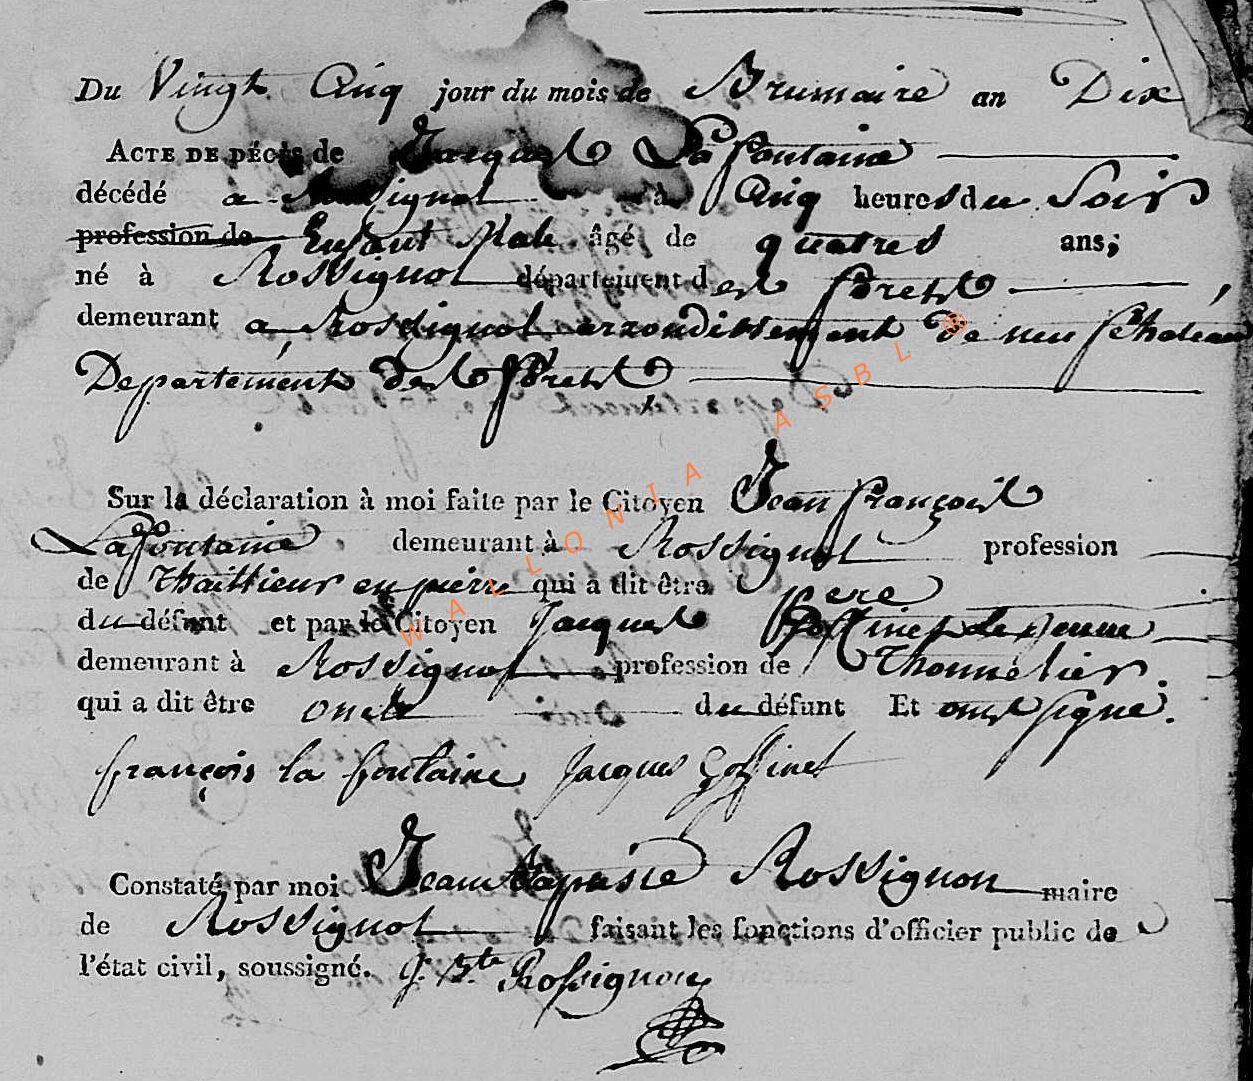 Du Vingt Cinq jour du mois de Brumaire an Dix
ACTE DE DÉCÈS de Jacques Lafontaine
décédé a Rossignol à Cinq heures du Soir
profession de Enfant Male âgé de quatres ans,
né à Rossignol département des forets
demeurant a Rossignol arrondissement de neufchateau
Departement des forets
Sur la déclaration à moi faite par le Citoyen Jean françois
Lafontaine demeurant à Rossignol profession
de Thaillieur en pierre qui a dit être pere
du défunt et par le Citoyen Jacques Goffinet le jeune
demeurant à Rossignol profession de Thonnelier
qui a dit être oncle du défunt Et ont signé.
françois la fontaine Jacques goffinet
Constaté par moi Jean Baptiste Rossignon maire
de Rossignol faisant les fonctions d'officier public de
l'état civil, soussigné. J. Bte Rossignon
WALLONIA ASBL ®